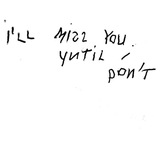 i'LL MiZZ YOU
UNTiL i
DON'T